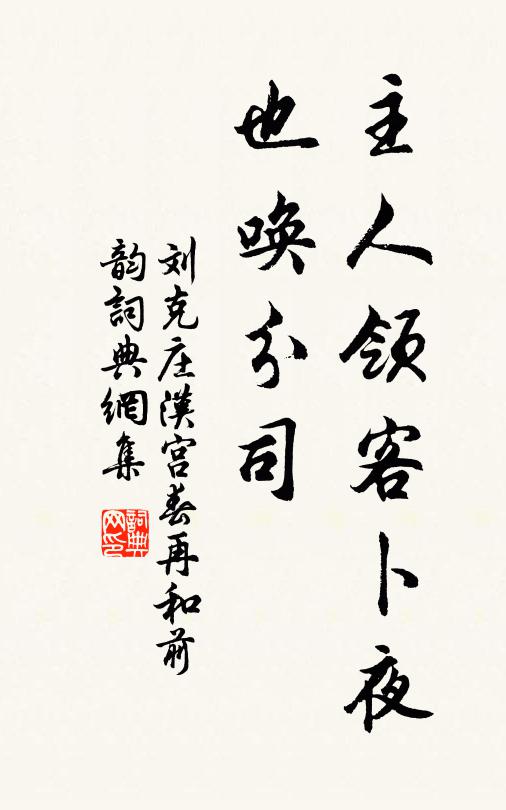 主人领客卜夜
也唤分司
刘克庄漢宫春再和前
韵詞典網集
詞典网印